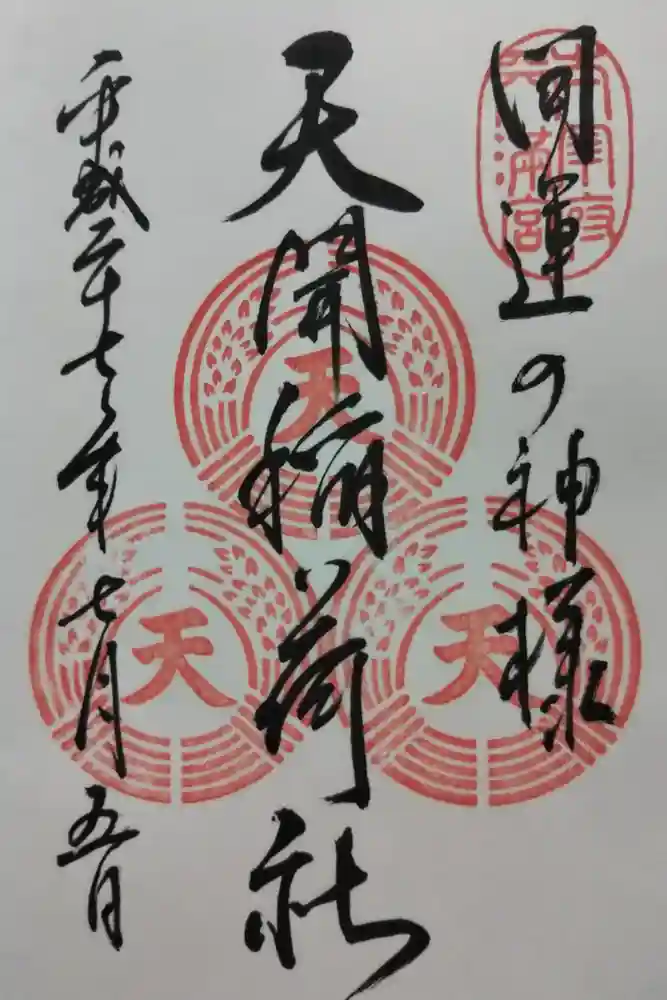 開運の神様
太宰府
天満宮
天開稲荷社
平成二十七年七月五日
天
天
天